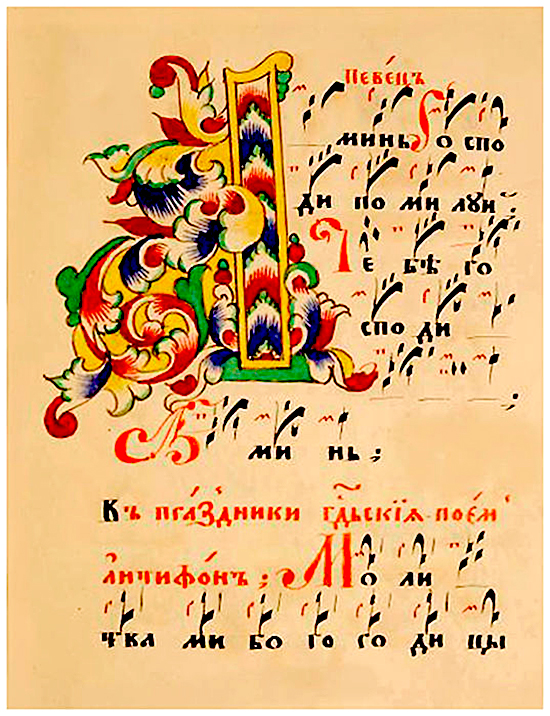 Певе́цъ
А минь Го спо
ди по ми луи :
Те бѣ го
спо ди
;
А ми нь ;
Къ пра́здники гд҇ьскїѧ пое́м
а҆нтифо́нъ ; Мо ли
тва ми бо го ро ди цы